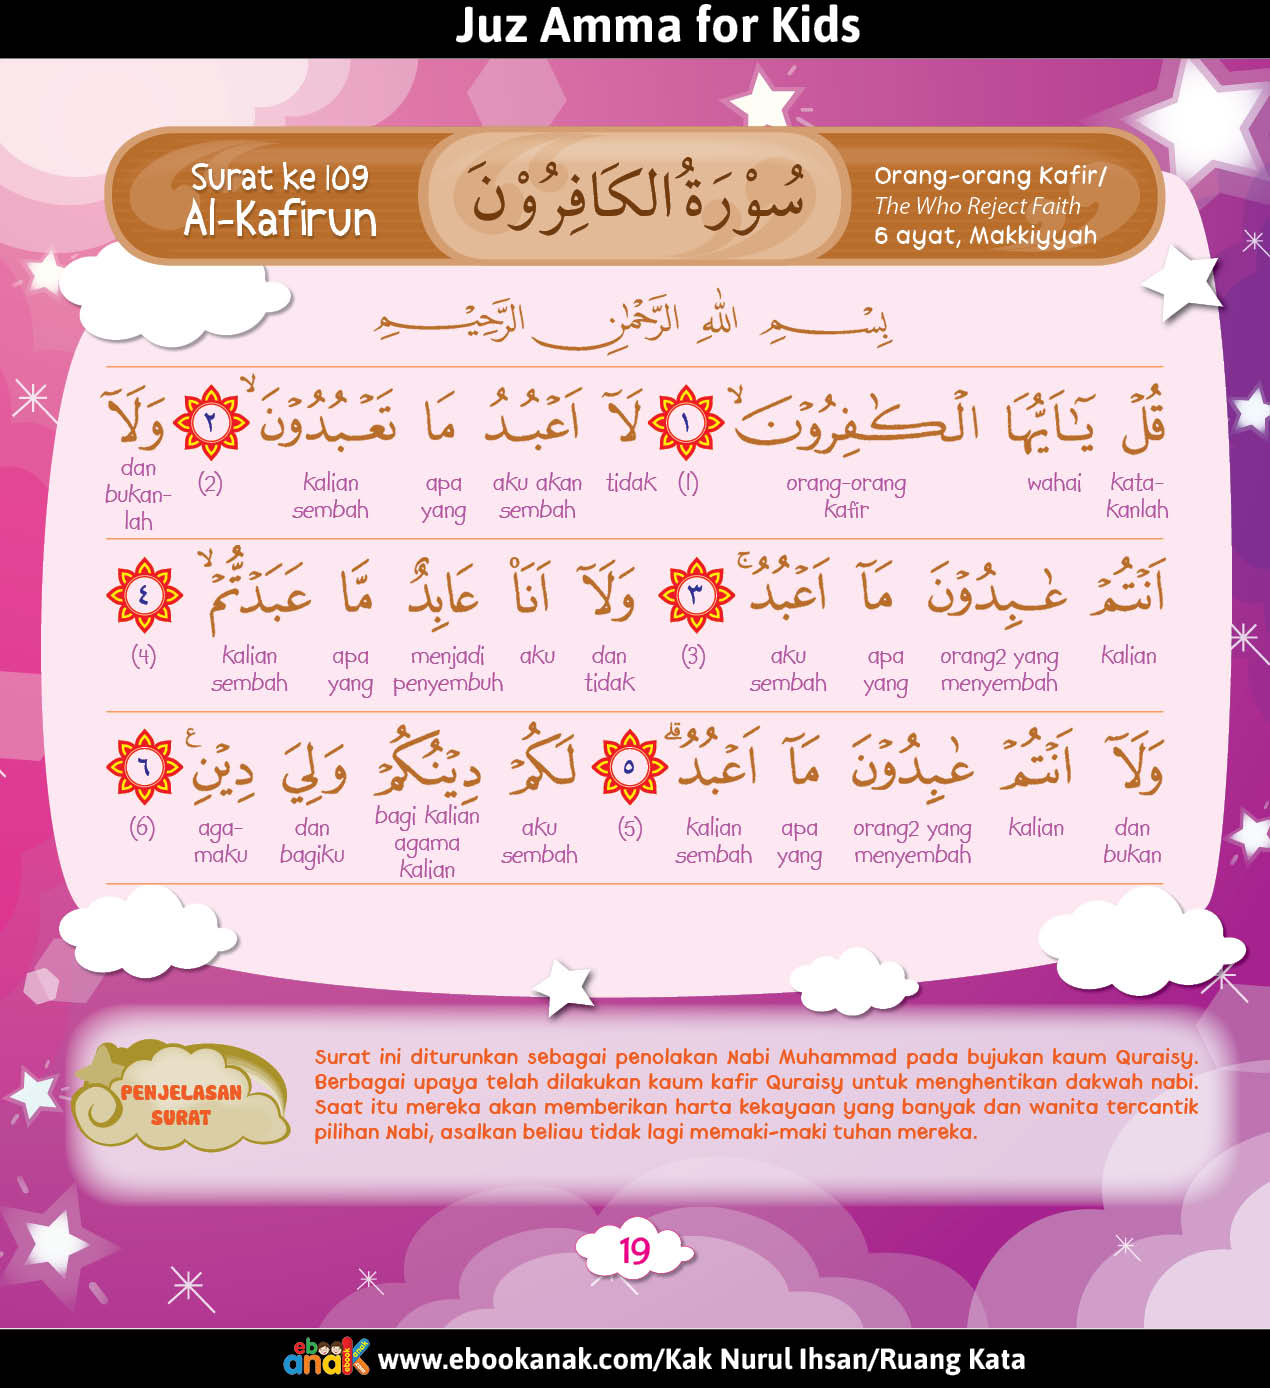 Juz Amma for Kids
Surat ke 109
Al-Kafirun
سُوْرَةُ الكَافِرُوْنَ
Orang-orang Kafir/
The Who Reject Faith
6 ayat, Makkiyyah
بِسْمِ اللّٰهِ الرَّحْمٰنِ الرَّحِيْمِ
قُلْ يٰٓاَيُّهَا الْكٰفِرُوْنَۙ ١ لَآ اَعْبُدُ مَا تَعْبُدُوْنَۙ ٢ وَلَآ
kata-kanlah wahai orang-orang kafir (1) tidak aku akan sembah apa yang kalian sembah (2) dan bukan-lah
اَنْتُمْ عٰبِدُوْنَ مَآ اَعْبُدُۚ ٣ وَلَآ اَنَا۠ عَابِدٌ مَّا عَبَدْتُّمْۙ ٤
kalian orang2 yang menyembah apa yang aku sembah (3) dan tidak aku menjadi penyembuh apa yang kalian sembah (4)
وَلَآ اَنْتُمْ عٰبِدُوْنَ مَآ اَعْبُدُۗ ٥ لَكُمْ دِيْنُكُمْ وَلِيَ دِيْنِ ࣖ ٦
dan bukan kalian orang2 yang menyembah apa yang kalian sembah (5) aku sembah bagi kalian agama kalian dan bagiku aga-maku (6)
PENJELASAN
SURAT
Surat ini diturunkan sebagai penolakan Nabi Muhammad pada bujukan kaum Quraisy.
Berbagai upaya telah dilakukan kaum kafir Quraisy untuk menghentikan dakwah nabi.
Saat itu mereka akan memberikan harta kekayaan yang banyak dan wanita tercantik
pilihan Nabi, asalkan beliau tidak lagi memaki-maki tuhan mereka.
19
ebook anak www.ebookanak.com/Kak Nurul Ihsan/Ruang Kata